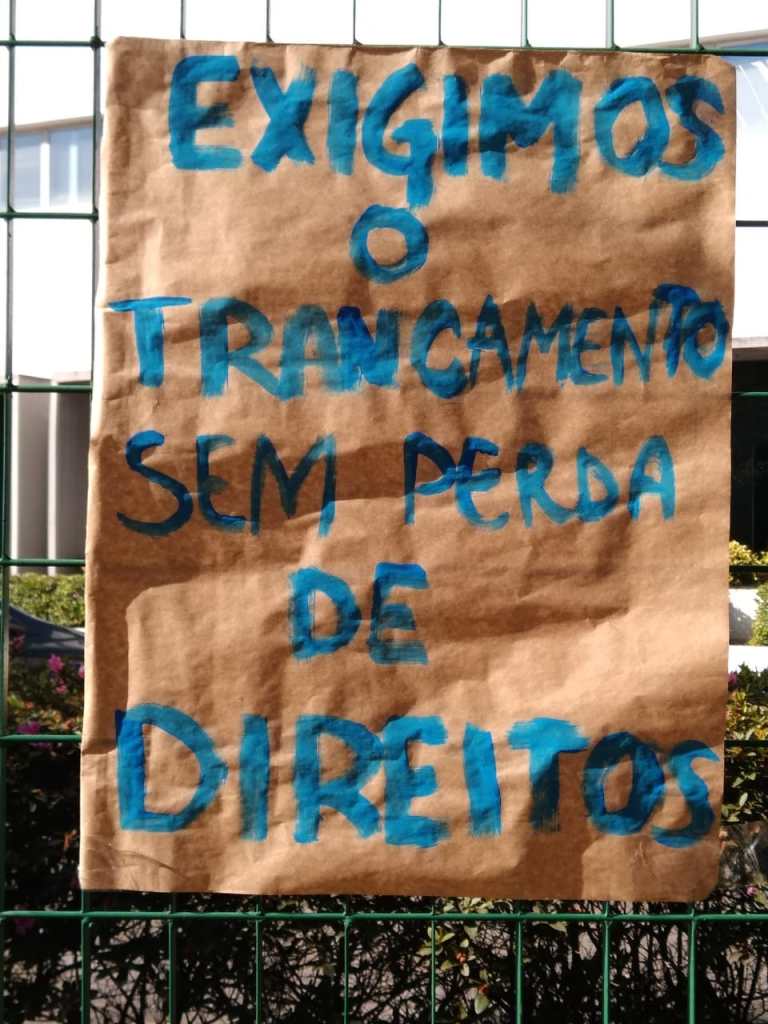 EXIGIMOS
O
TRANCAMENTO
SEM PERDA
DE
DIREITOS